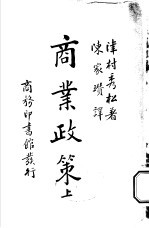 津村秀松著
陳家瓚譯
商業政策上
商務印書館發行